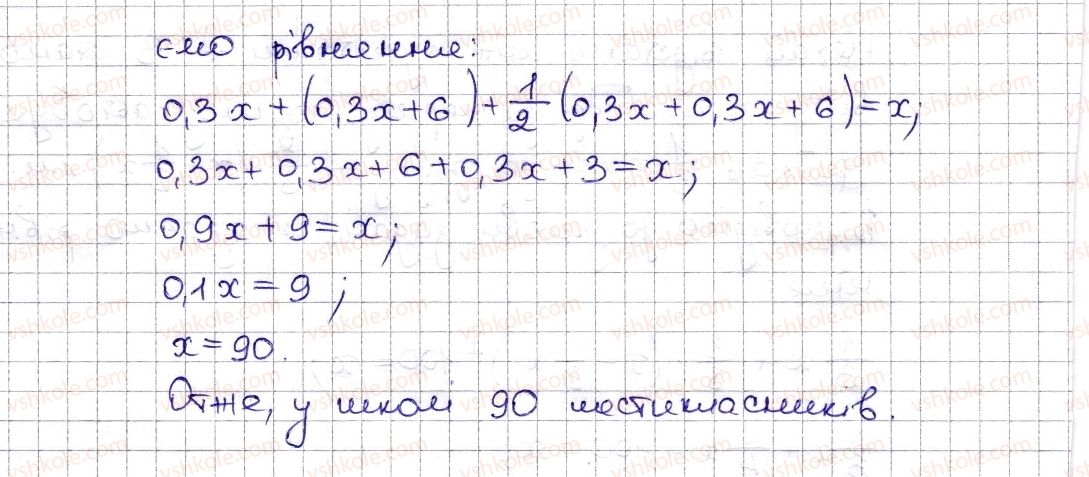 ємо рівняння:
0,3x + (0,3x+6) + 1/2 (0,3x + 0,3x + 6) = x;
0,3x + 0,3x + 6 + 0,3x + 3 = x;
0,9x + 9 = x;
0,1x = 9;
x = 90.
Отже, у школі 90 шестикласників.